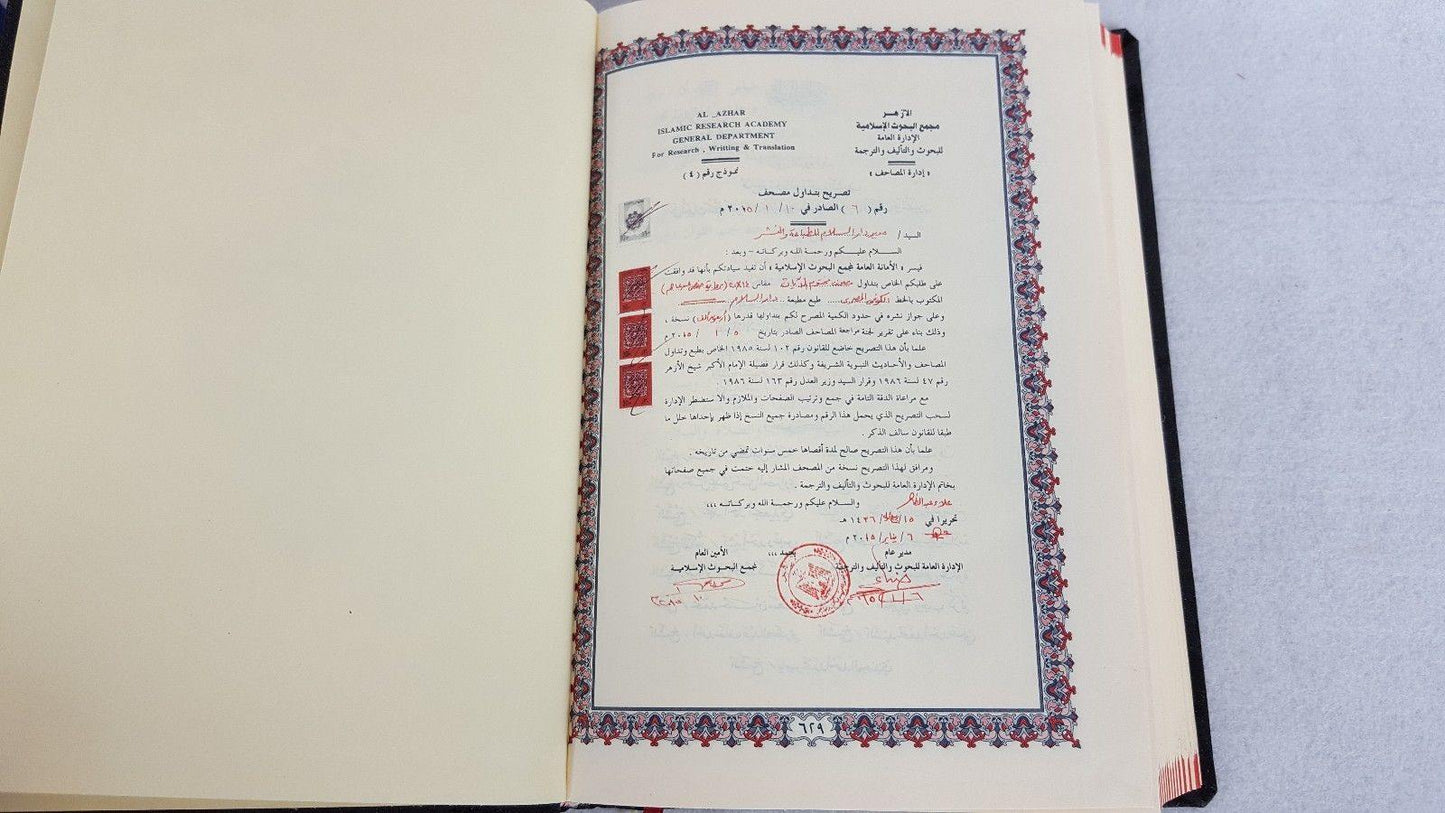 AL _AZHAR
ISLAMIC RESEARCH ACADEMY
GENERAL DEPARTMENT
For Research , Writting & Translation
نموذج رقم ( ٤ )
الأزهر
مجمع البحوث الإسلامية
الإدارة العامة
للبحوث والتأليف والترجمة
« إدارة المصاحف »
تصريح بتداول مصحف
رقم ( ٦ ) الصادر في ١٠ / ١ / ٢٠١٥ م
السيد / مدير دار السلام للطباعة والنشر
السلام عليكم ورحمة الله وبركاته - وبعد :
فيسر « الأمانة العامة لمجمع البحوث الإسلامية » أن تفيد سيادتكم بأنها قد وافقت
على طلبكم الخاص بتداول مصحف مقاس
المكتوب بالخط ..... طبع مطبعة .. دار السلام
وعلى جواز نشره في حدود الكمية المصرح لكم بتداولها قدرها ( ) نسخة ،
وذلك بناء على تقرير لجنة مراجعة المصاحف الصادر بتاريخ ٥ / ١ / ٢٠١٥ م
علما بأن هذا التصريح خاضع للقانون رقم ١٠٢ لسنة ١٩٨٥ الخاص بطبع وتداول
المصاحف والأحاديث النبوية الشريفة وكذلك قرار فضيلة الإمام الأكبر شيخ الأزهر
رقم ٤٧ لسنة ١٩٨٦ وقرار السيد وزير العدل رقم ١٦٣ لسنة ١٩٨٦ .
مع مراعاة الدقة التامة في جمع وترتيب الصفحات والملازم والا ستضطر الإدارة
لسحب التصريح الذي يحمل هذا الرقم ومصادرة جميع النسخ إذا ظهر بإحداها خلل ما
طبقا للقانون سالف الذكر .
علما بأن هذا التصريح صالح لمدة أقصاها خمس سنوات تمضي من تاريخه .
ومرافق لهذا التصريح نسخة من المصحف المشار إليه ختمت في جميع صفحاتها
بخاتم الإدارة العامة للبحوث والتأليف والترجمة .
والسلام عليكم ورحمة الله وبركاته ،،،
علاء عبد الظاهر
تحريرا في ١٥ / / ١٤٣٦ هـ
٦ / يناير / ٢٠١٥ م
مدير عام
الإدارة العامة للبحوث والتأليف والترجمة
يعتمد ،،،
الأمين العام
لمجمع البحوث الإسلامية
٦٢٩